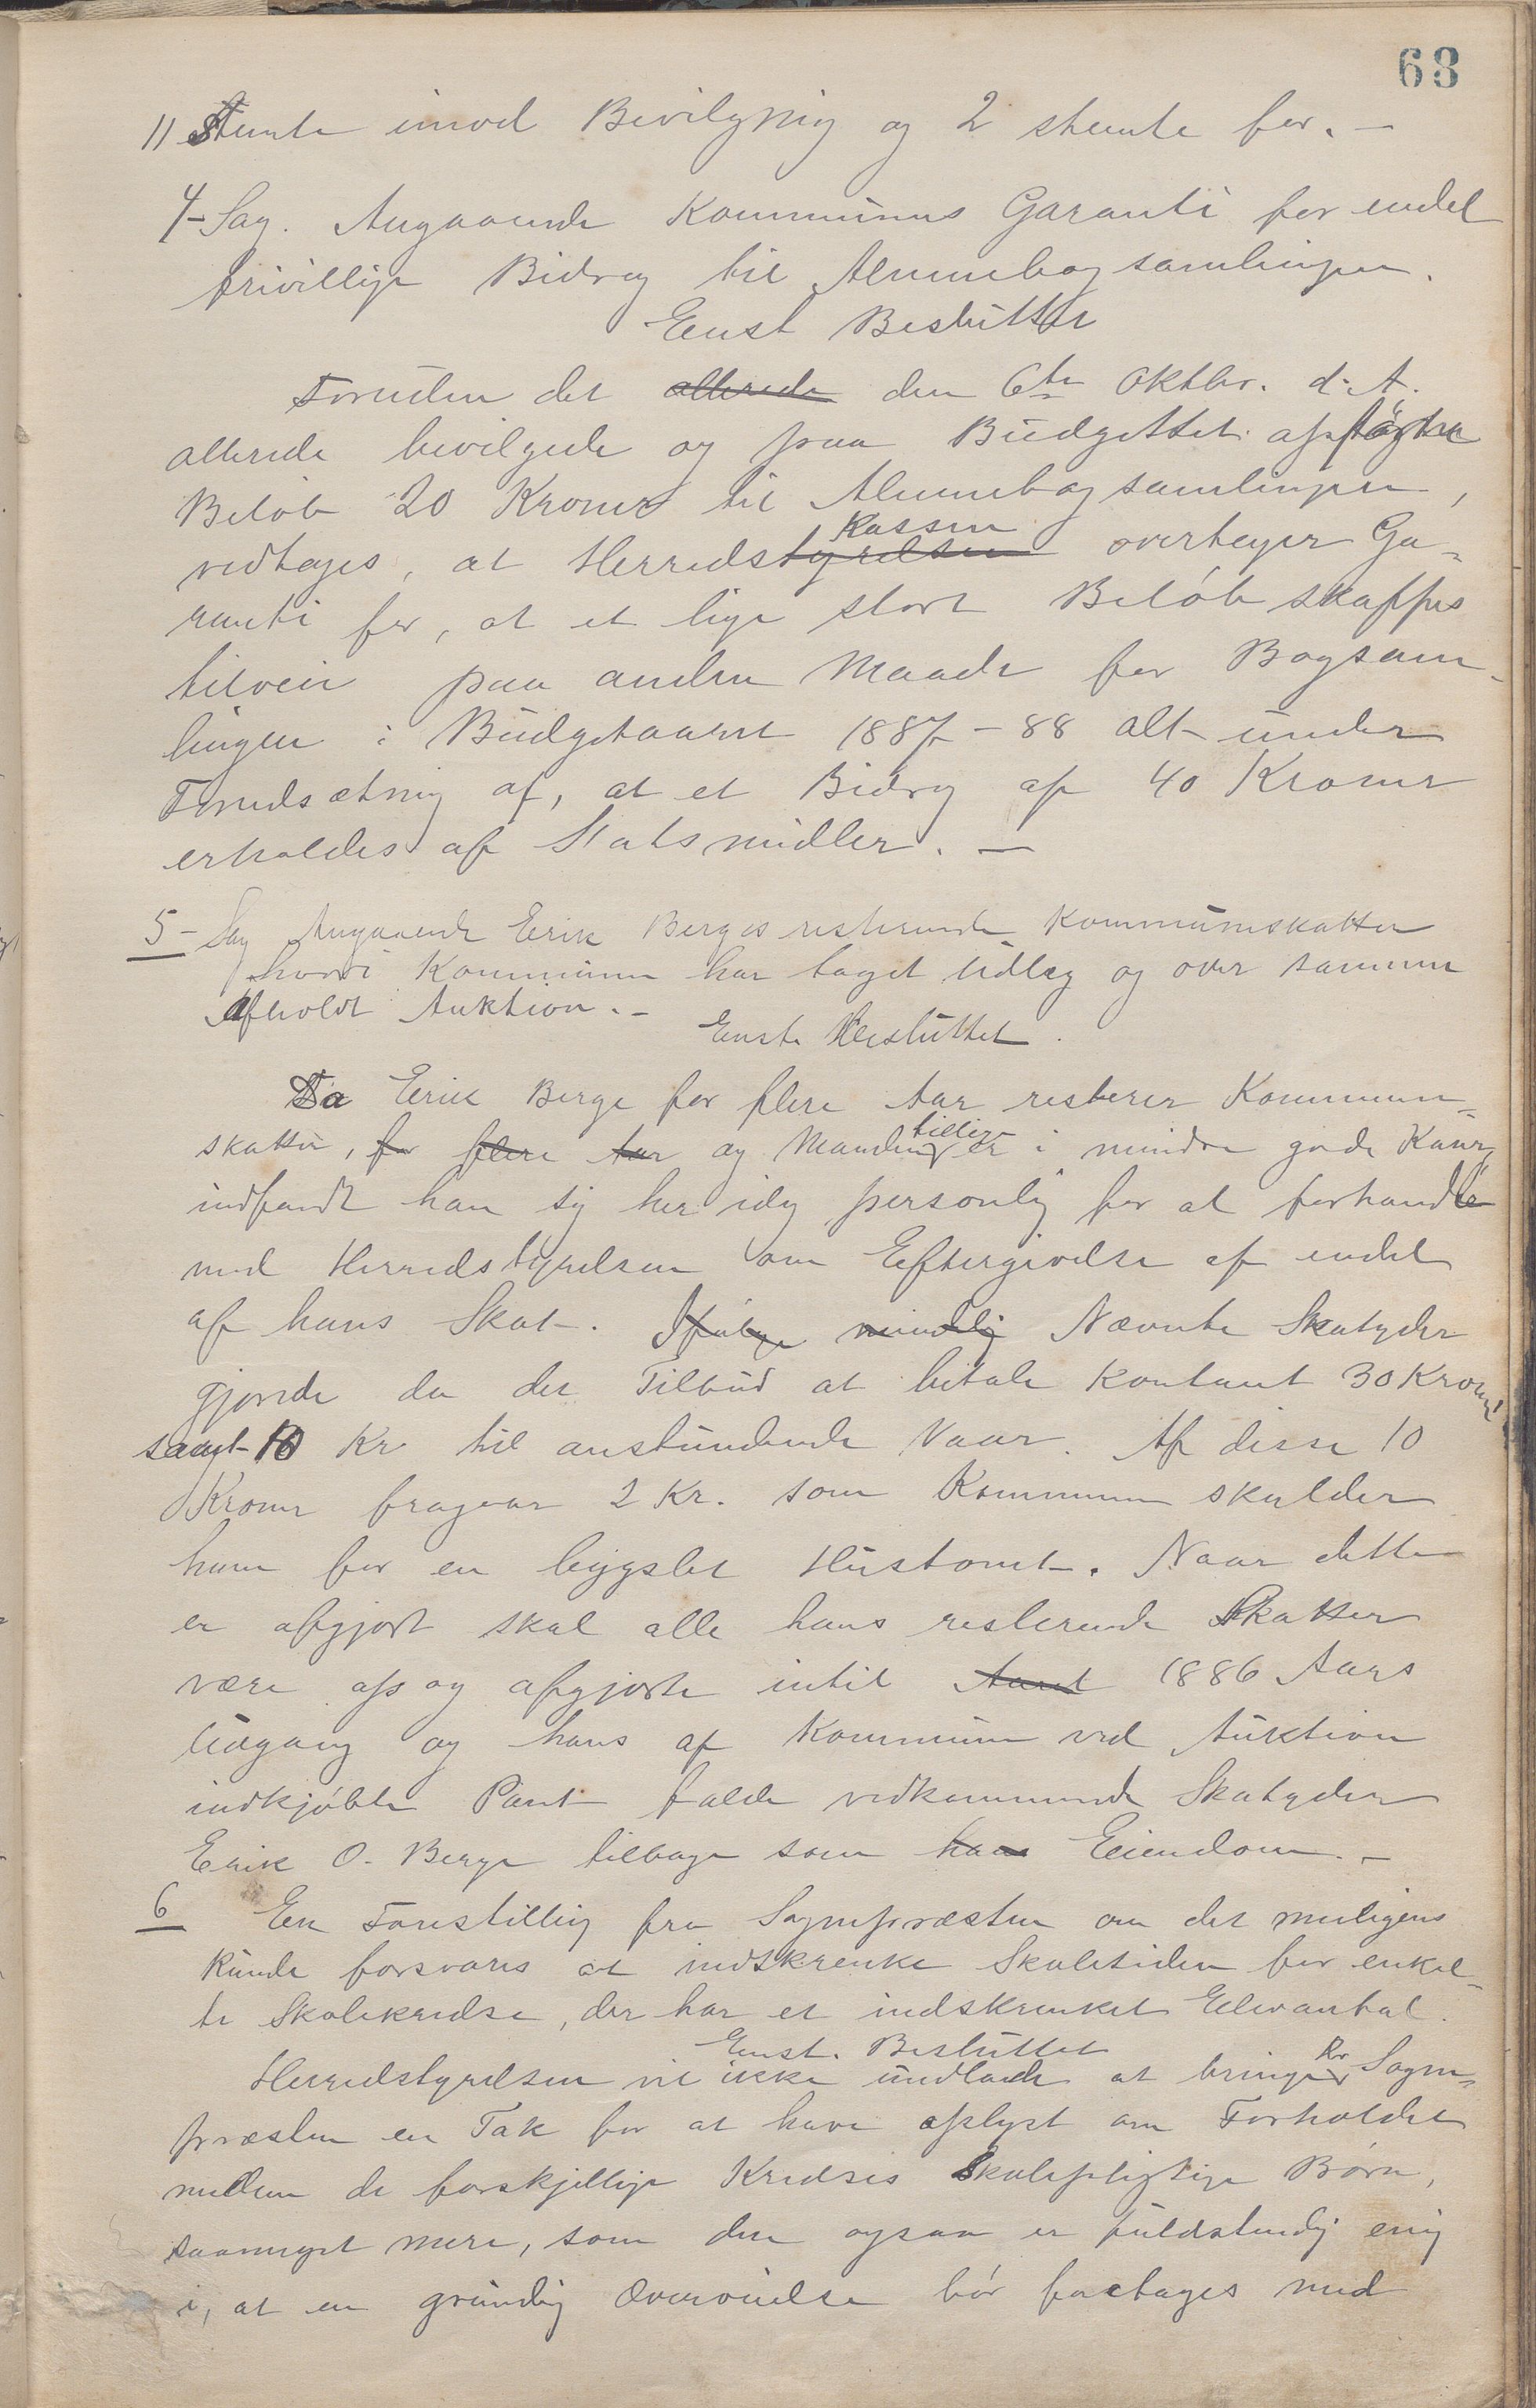 63
11 Stemte imod Bevilgnig og 2 stemte for. –
4– Sag. Angaaende Kommunens Garanti for endel
frivillige Bidrag til Almuebogsamlingen.
Enst Besluttet
Foruden det allerede den 6te Oktbr. d. A.
allerede bevilgede og paa Budgettet opførte
Beløb 20 Kroner til Almuebogsamlingen,
vedtages, at Herredstyrelsen Kassen overtager Ga-
ranti for, at et lige stort Beløb skaffes
tilveie paa anden Maade for Bogsam-
lingen i Budgetaaret 1887–88 alt under
Forudsætnig af, at et Bidrag af 40 Kroner
erholdes af Statsmidler. –
5– Sag Angaaende Erik Berges resterende Kommuneskatter
hvori Kommunen har taget Udlæg og over samme
afholdt Auktion. –
Enst. Besluttet.
Da Erik Berge for flere Aar resterer Kommune-
skatter, for flere Aar og Manden tillige er i mindre gode Kaar,
indfandt han sig her idag personlig for at forhandle
med Herredstyrelsen om Eftergivelse af endel
af hans Skat. Ifølge mundlig Nævnte Skatyder
gjorde da det Tilbud at betale kontant 30 Kroner
samt 10 Kr til anstundende Vaar. Af disse 10
Kroner fragaar 2 Kr. som Kommunen skylder
ham for en bygslet Hustomt. Naar dette
er afgjort skal alle hans resterende Skatter
være af og afgjorte intil Aaret 1886 Aars
Udgang og hans af Kommunen ved Auktion
indkjøbte Pant falde vedkommende Skatyder
Erik O. Berge tilbage som hans Eiendom. –
6 En Forestillig fra Sognepræsten om det muligens
kunde forsvares at indskrenke Skoletiden for enkel-
te Skolekredse, der har et indskrenket Elevantal.
Enst. Besluttet
Herredstyrelsen vil ikke undlade at bringe Hr Sogne-
præsten en Tak for at have oplyst om Forholdet
mellem de forskjellige Kredses Skolepligtige Børn,
saameget mere, som den ogsaa er fuldstendig enig
i, at en grundig Overveielse bør foretages med